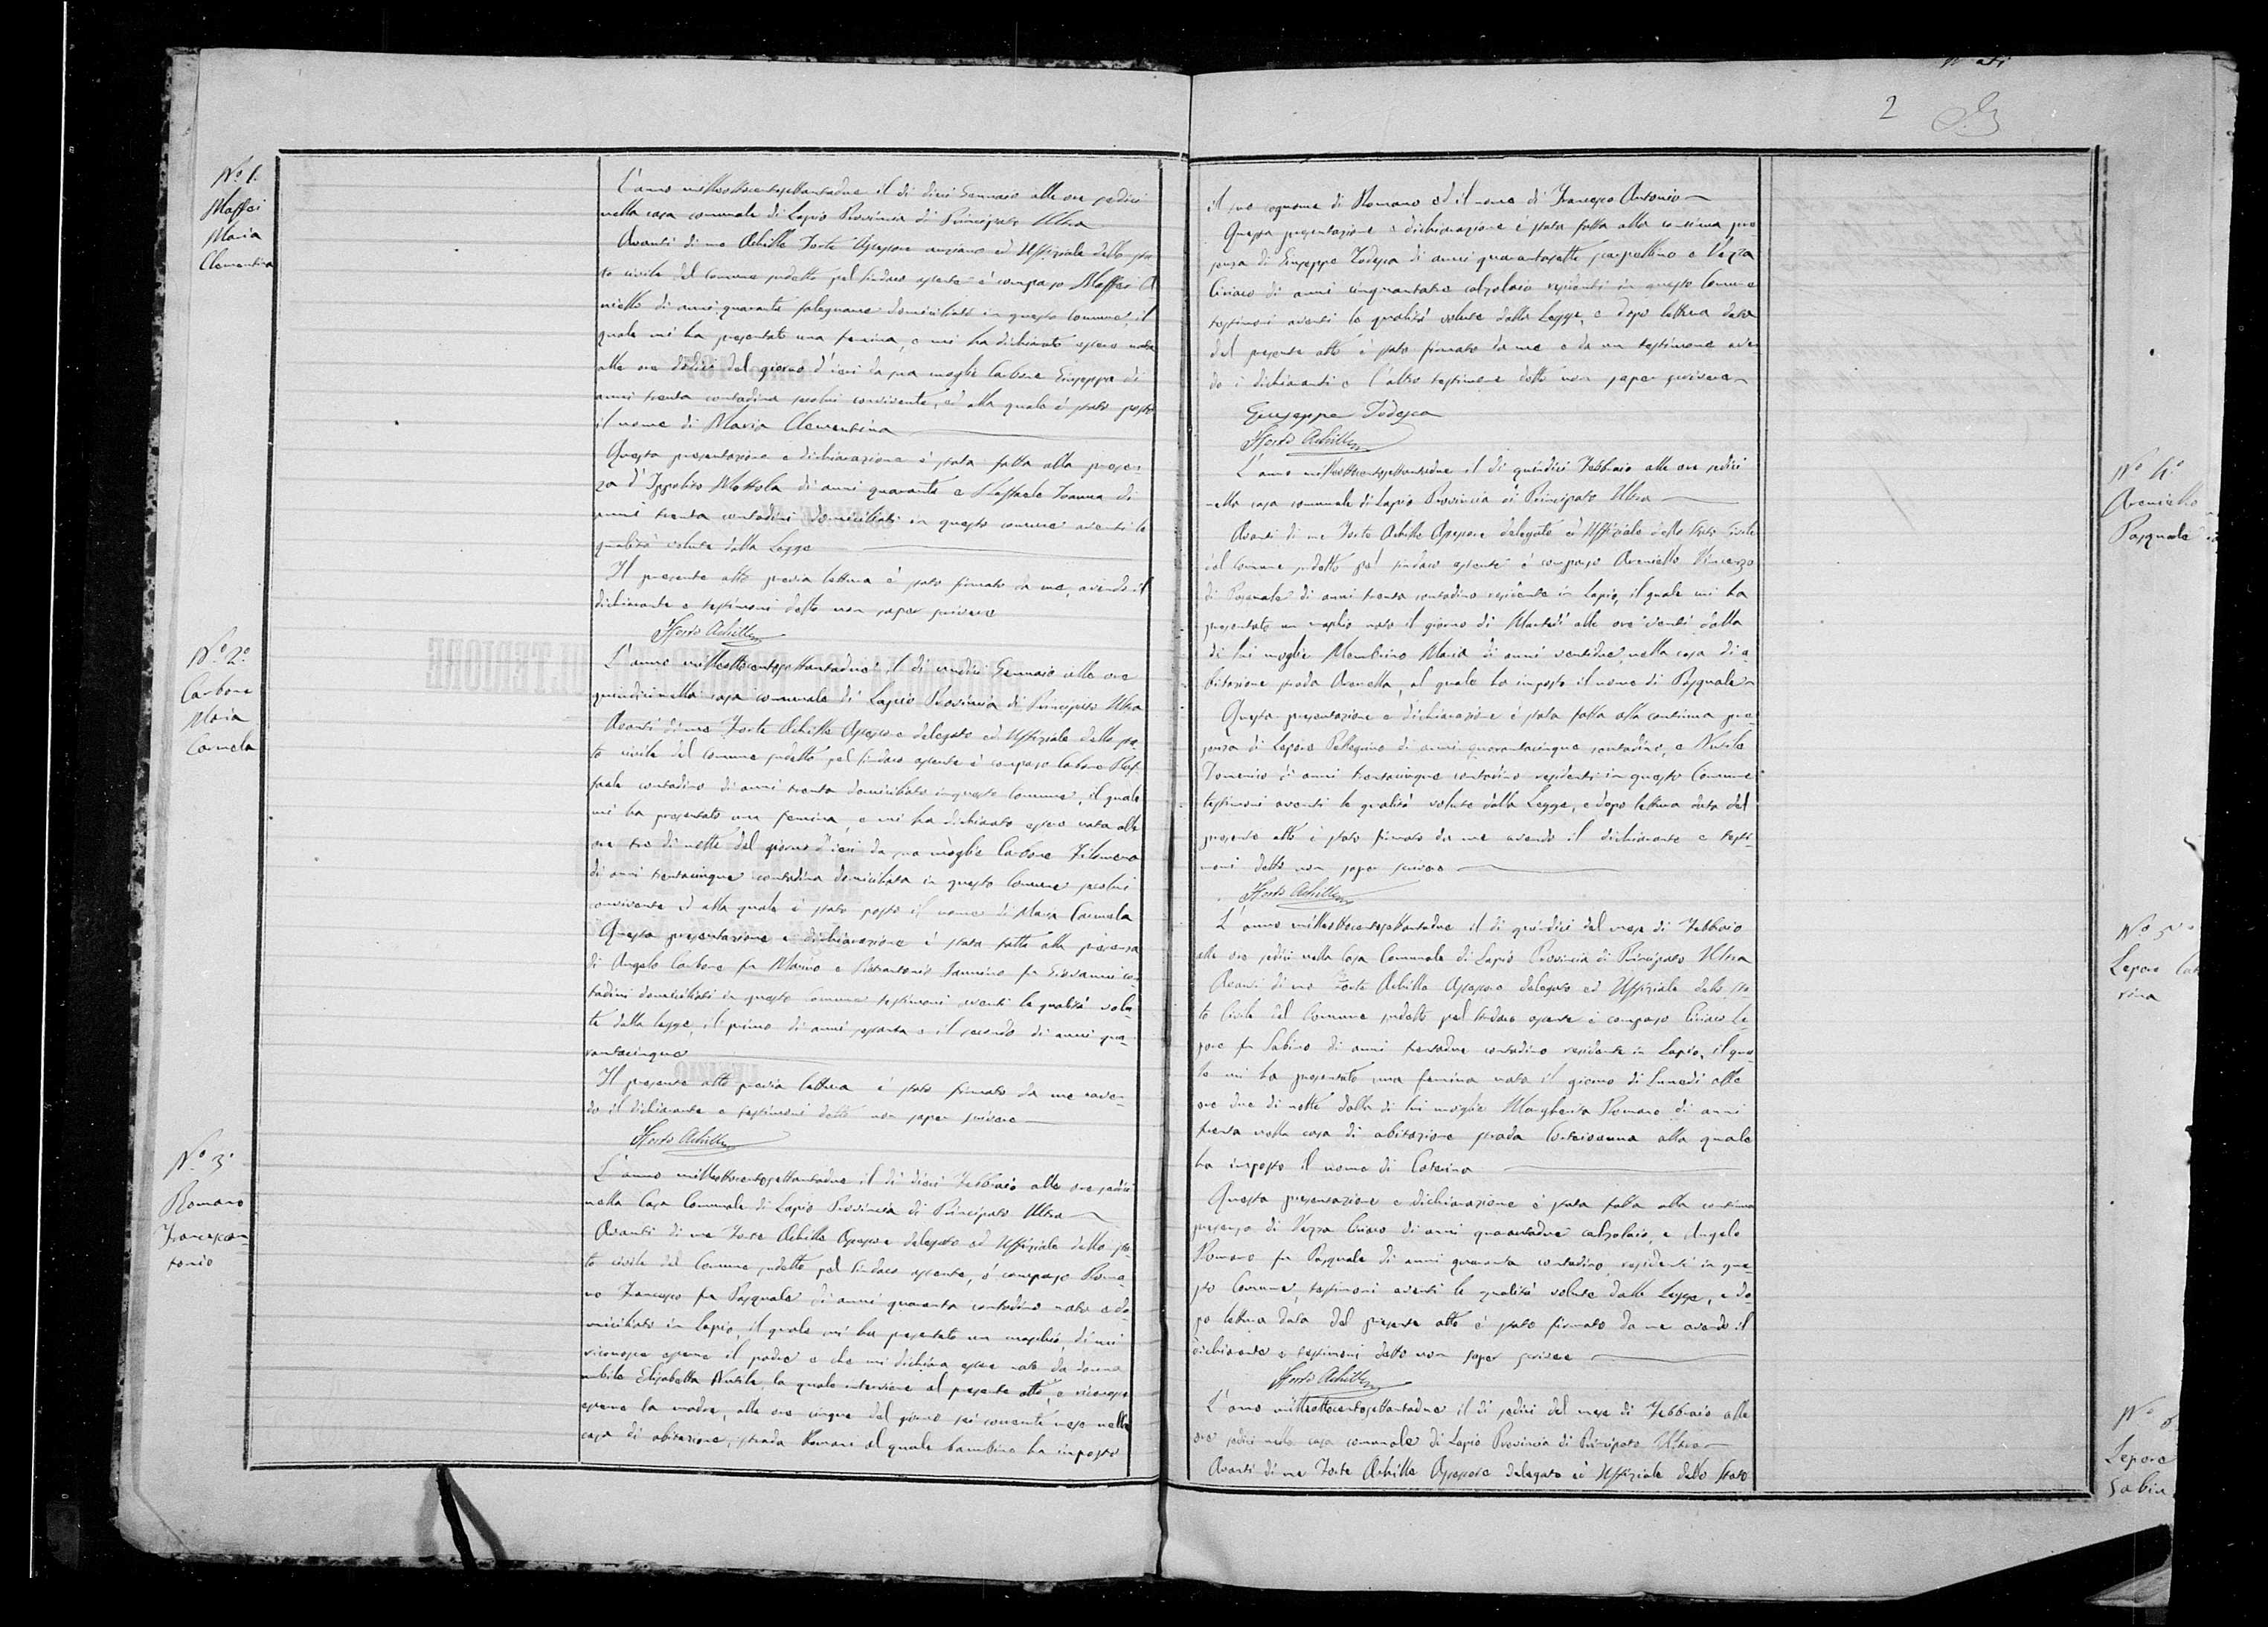 N.° 1.
Maffei
Maria
Clementina
L'anno milleottocentosettantadue il dì dieci Gennaio alle ore sedici
nella casa comunale di Lapio Provincia di Principato Ultra
Avanti di me Achille Forte Assessore anziano ed Uffiziale dello sta
to civile del Comune sudetto pel Sindaco assente è comparso Maffei A
niello di anni quaranta falegname domiciliato in questo Comune, il
quale mi ha presentato una femina, e mi ha dichiarato essere nata
alle ore dodici del giorno d'ieri da sua moglie Carbone Giuseppa di
anni trenta contadina secolui convivente, ed alla quale è stato posto
il nome di Maria Clementina
Questa presentazione e dichiarazione è stata fatta alla presen
za d'Ippolito Mottola di anni quaranta e Raffaele Ioanna di
anni trenta contadini domiciliati in questo comune aventi le
qualità volute dalla Legge
Il presente atto previa lettura è stato firmato da me, avendo il
dichiarante e testimoni detto non saper scrivere
Forte Achille
N.° 2.°
Carbone
Maria
Carmela
L'anno milleottocentosettantadue il dì undici Gennaio alle ore
quindici nella casa comunale di Lapio Provincia di Principato Ultra
Avanti di me Forte Achille Assessore delegato ed Uffiziale dello sta
to civile del comune sudetto pel Sindaco assente è comparso Carbone Raf
faele contadino di anni trenta domiciliato in questo Comune, il quale
mi ha presentato una femina, e mi ha dichiarato essere nata alle
ore tre di notte del giorno d'ieri da sua moglie Carbone Filomena
di anni trentacinque contadina domiciliata in questo Comune secolui
convivente ed alla quale è stato posto il nome di Maria Carmela
Questa presentazione e dichiarazione è stata fatta alla presenza
di Angelo Carbone fu Marino e Pietrantonio Iannino fu Giovanni con
tadini domiciliati in questo Comune testimoni aventi le qualità volu
te dalla legge, il primo di anni sessanta e il secondo di anni qua
rantacinque
Il presente atto previa lettura è stato firmato da me aven
do il dichiarante e testimoni detto non saper scrivere
Forte Achille
N.° 3.°
Romano
Francescan
tonio
L'anno milleottocentosettantadue il dì dieci Febbraio alle ore sedici
nella Casa Comunale di Lapio Provincia di Principato Ultra
Avanti di me Forte Achille Assessore delegato ed Uffiziale dello sta
to civile del Comune sudetto pel Sindaco assente, è comparso Roma
no Francesco fu Pasquale di anni quaranta contadino nato e do
miciliato in Lapio, il quale mi ha presentato un maschio, di cui
riconosce esserne il padre e che mi dichiara esser nato da donna
nubile Elisabetta Nusile, la quale interviene al presente atto, e riconosce
esserne la madre, alle ore cinque del giorno sei corrente mese nella
casa di abitazione, strada Romani al quale bambino ha imposto
2
il suo cognome di Romano ed il nome di Francesco Antonio
Questa presentazione e dichiarazione è stata fatta alla continua pre
senza di Giuseppe Todesca di anni quarantasette scarpellino e Vezza
Ciriaco di anni cinquantatre calzolaio residenti in questo Comune
testimoni aventi le qualità volute dalla Legge, e dopo lettura data
del presente atto è stato firmato da me e da un testimone aven
do i dichiaranti e l'altro testimone detto non saper scrivere
Giuseppe Todesca
Forte Achille
N.° 4.°
Areniello
Pasquale
L'anno milleottocentosettantadue il dì quindici Febbraio alle ore sedici
nella casa comunale di Lapio Provincia di Principato Ultra
Avanti di me Forte Achille Assessore delegato ed Uffiziale dello Stato Civile
del Comune sudetto pel sindaco assente è comparso Areniello Vincenzo
di Pasquale di anni trenta contadino residente in Lapio, il quale mi ha
presentato un maschio nato il giorno di Martedì alle ore venti dalla
di lui moglie Membrino Maria di anni ventidue, nella casa di a
bitazione strada Arenella, al quale ha imposto il nome di Pasquale
Questa presentazione e dichiarazione è stata fatta alla continua pre
senza di Lepore Pellegrino di anni quarantacinque contadino, e Nusile
Domenico di anni trentacinque contadino residenti in questo Comune
testimoni aventi le qualità volute dalla Legge, e dopo lettura data del
presente atto è stato firmato da me avendo il dichiarante e testi
moni detto non saper scrivere
Forte Achille
N.° 5.°
Lepore Cate
rina
L'anno milleottocentosettantadue il dì quindici del mese di Febbraio
alle ore sedici nella Casa Comunale di Lapio Provincia di Principato Ultra
Avanti di me Forte Achille Assessore delegato ed Uffiziale dello sta
to Civile del Comune sudetto pel Sindaco assente è comparso Ciriaco Le
pore fu Sabino di anni trentadue contadino residente in Lapio, il qua
le mi ha presentato una femina nata il giorno di Lunedì alle
ore due di notte dalla di lui moglie Margherita Romano di anni
trenta nella casa di abitazione strada alla quale
ha imposto il nome di Caterina
Questa presentazione e dichiarazione è stata fatta alla continua
presenza di Vezza Ciriaco di anni quarantadue calzolaio, e Angelo
Romano fu Pasquale di anni quaranta contadino residenti in que
sto Comune, testimoni aventi le qualità volute dalla Legge, e do
po lettura data del presente atto è stato firmato da me avendo il
dichiarante e testimoni detto non saper scrivere
Forte Achille
N.° 6
Lepore
Sabin
L'anno milleottocentosettantadue il dì sedici del mese di Febbraio alle
ore sedici nella casa comunale di Lapio Provincia di Principato Ultra
Avanti di me Forte Achille Assessore delegato ed Uffiziale dello Stato